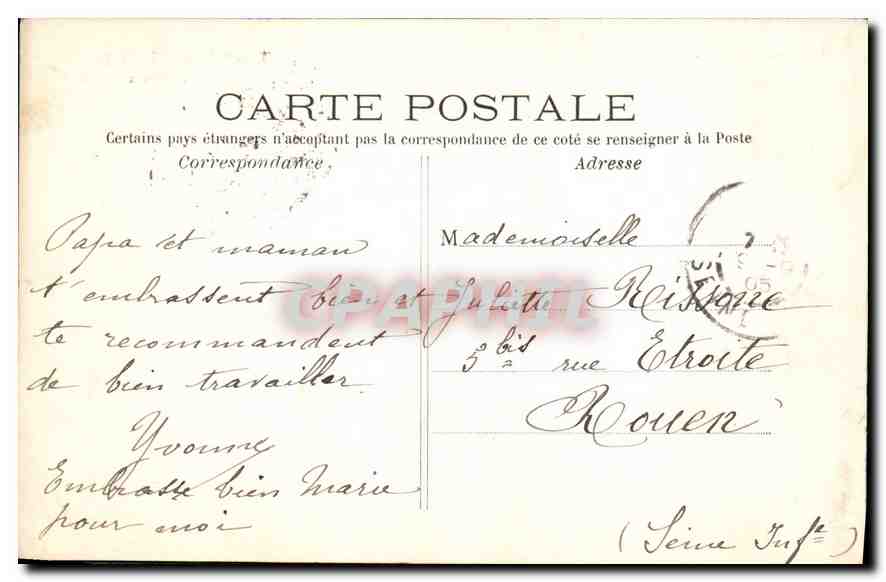 CARTE POSTALE
Certains pays étrangers n'acceptant pas la correspondance de ce coté se renseigner à la Poste
Correspondance.
Adresse
Papa et maman
t'embrassent bien et
te recommandent
de bien travailler
Yvonne
Embrasse bien Marie
pour moi
Mademoiselle
Juliette
5 bis rue Etroite
Rouen
(Seine Infre)
CPAPHIL